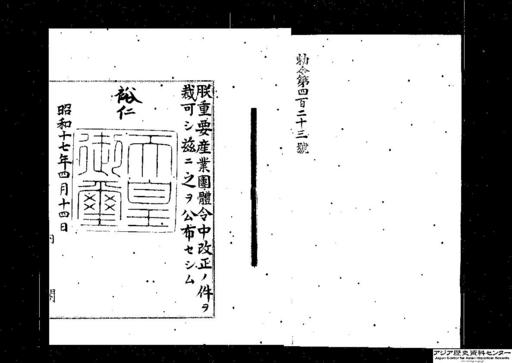 勅令第四百二十三號
朕重要産業團體令中改正ノ件ヲ
裁可シ茲ニ之ヲ公布セシム
裕仁
天皇御璽
昭和十七年四月十四日
内閣
アジア歴史資料センター
Japan Center for Asian Historical Records